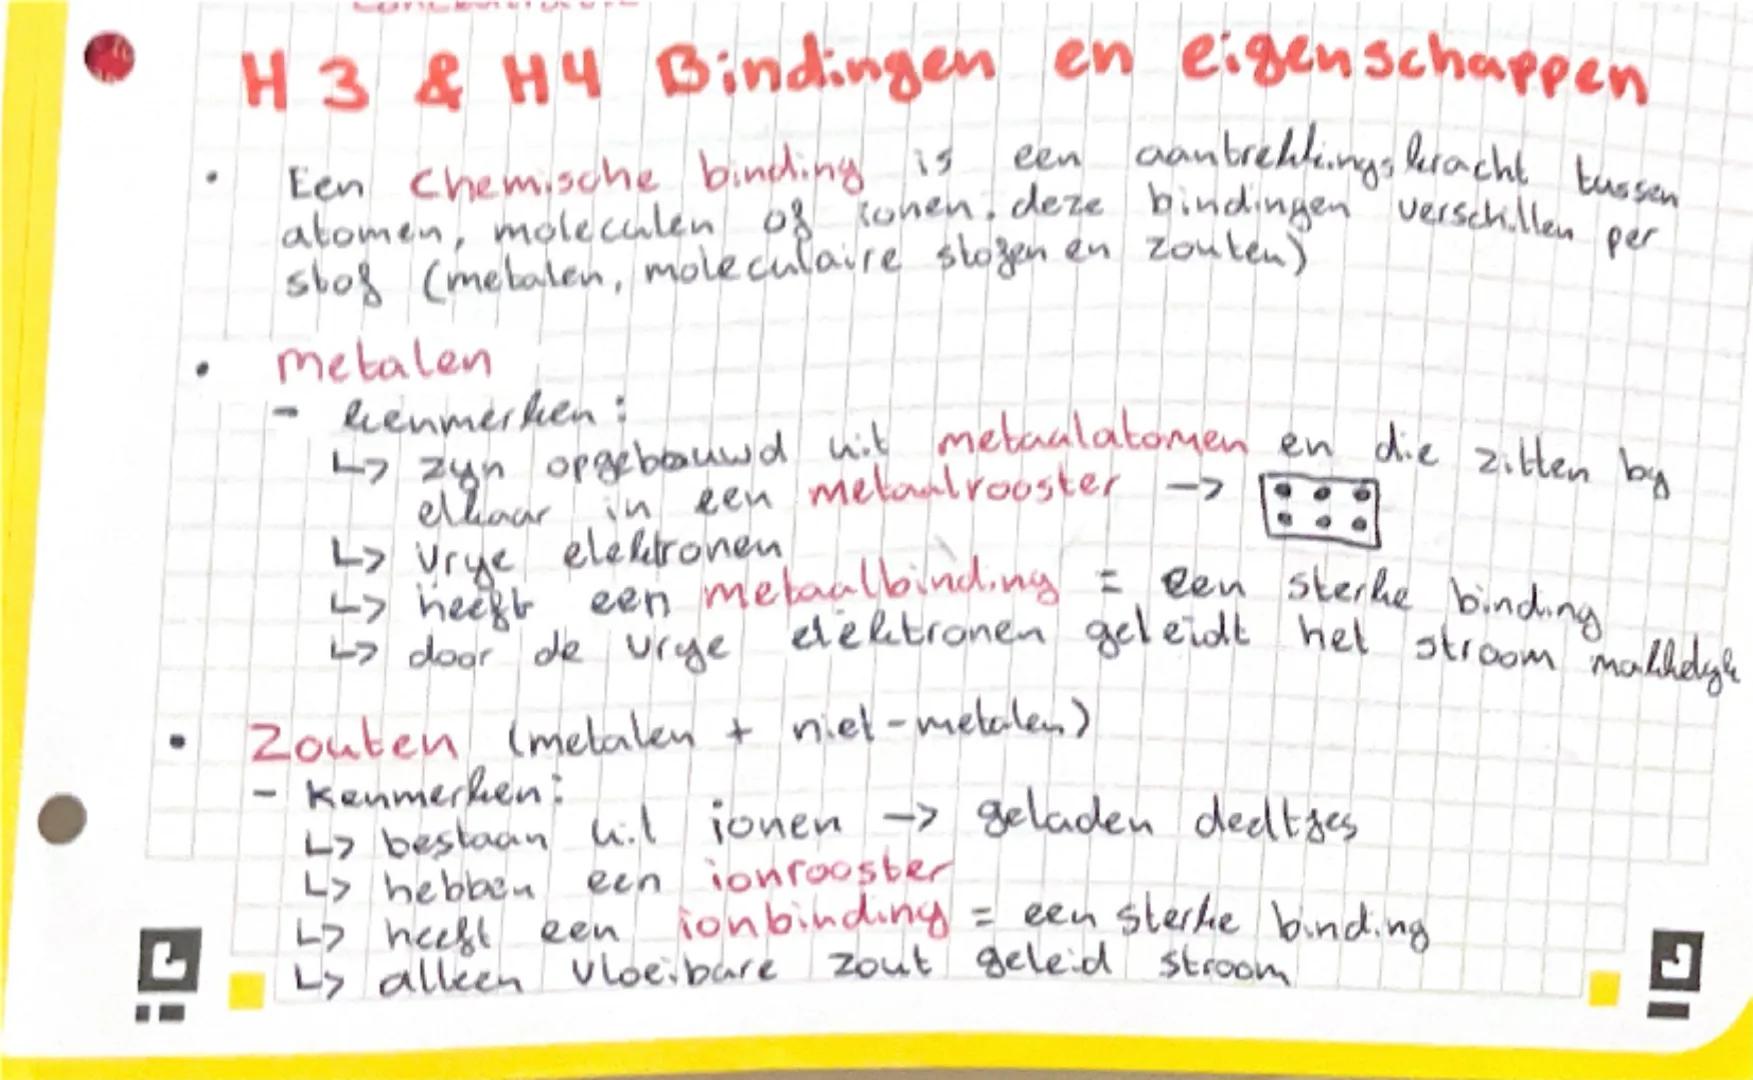 H3 & H4 Bindingen en eigenschappen
• Een chemische binding is een aantrekkingskracht tussen
atomen, moleculen of ionen. deze bindingen verschillen per
stof (metalen, moleculaire stoffen en zouten)
• Metalen
- kenmerken:
↳ zijn opgebouwd uit metaalatomen en die zitten bij
elkaar in een metaalrooster ->
↳ vrije elektronen
↳ heeft een metaalbinding = een sterke binding
↳ door de vrije elektronen geleidt het stroom makkelijk
• Zouten (metalen + niet-metalen)
- Kenmerken:
↳ bestaan uit ionen -> geladen deeltjes
↳ hebben een ionrooster
↳ heeft een ionbinding = een sterke binding
↳ alleen vloeibare zout geleid stroom